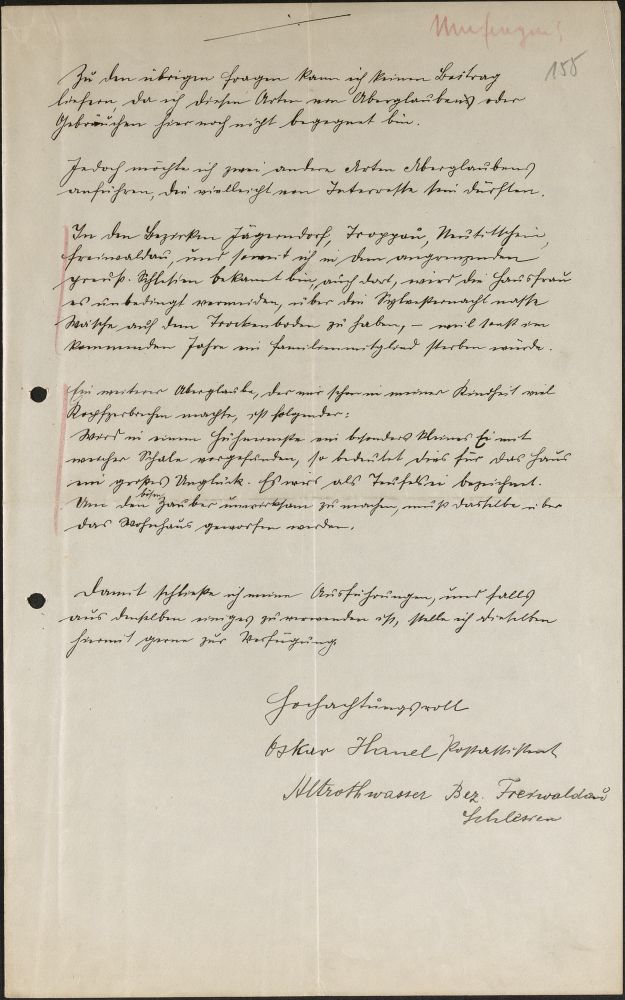 155
Zu den übrigen Fragen kann ich keinen Beitrag
liefern, da ich diesen Arten von Aberglaubens oder
Gebräuchen hier noch nicht begegnet bin.
Jedoch möchte ich zwei andere Arten Aberglaubens
anführen, die vielleicht von Interesse sein dürften.
In den Bezirken Jägerndorf, Troppau, Neutitschein,
Freiwaldau, und soweit ich in dem angrenzenden
preuß. Schlesien bekannt bin, auch dort, wird die Hausfrau
es unbedingt vermeiden, über die Sylvesternacht nasse
Wäsche auf dem Trockenboden zu haben, – weil sonst im
kommenden Jahre ein Familienmitglied sterben würde.
Ein weiterer Aberglaube, der mir schon in meiner Kindheit viel
Kopfzerbrechen machte, ist folgender:
Wird in einem Hühnerneste ein besonders kleines Ei mit
weicher Schale vorgefunden, so bedeutet dies für das Haus
ein großes Unglück. Es wird als Teufelsei bezeichnet.
Um den bösen Zauber unwirksam zu machen, muß dasselbe über
das Wohnhaus geworfen werden.
Damit schließe ich meine Ausführungen, und falls
aus denselben einiges zu verwenden ist, stelle ich dieselben
hiermit gerne zur Verfügung.
Hochachtungsvoll
Oskar Hanel Postassistent
Altrothwasser Bez. Freiwaldau
Schlesien